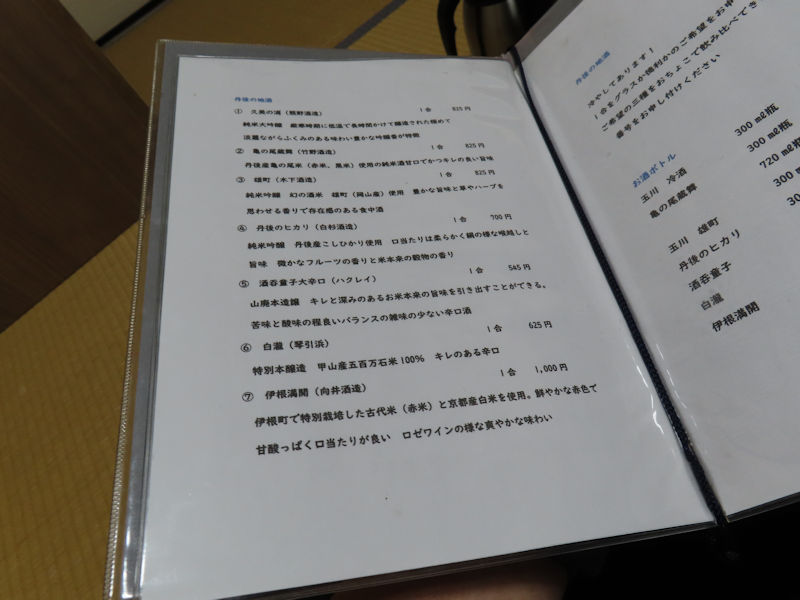 丹後の地酒
① 久美の浦（熊野酒造） 1合 825円
純米大吟醸 厳寒時期に低温で長時間かけて醸造された極めて
淡麗ながらふくみのある味わい豊かな吟醸香が特徴
② 亀の尾蔵舞（竹野酒造） 1合 825円
丹後産亀の尾米（赤米、黒米）使用の純米酒甘口でかつキレの良い旨味
③ 雄町（木下酒造） 1合 825円
純米吟醸 幻の酒米 雄町（岡山産）使用 豊かな旨味と草やハーブを
思わせる香りで存在感のある食中酒
④ 丹後のヒカリ（白杉酒造） 1合 700円
純米吟醸 丹後産こしひかり使用 口当たりは柔らかく絹の様な喉越しと
旨味 微かなフルーツの香りと米本来の穀物の香り
⑤ 酒呑童子大辛口（ハクレイ） 1合 545円
山廃本造醸 キレと深みのあるお米本来の旨味を引き出すことができる。
苦味と酸味の程良いバランスの雑味の少ない辛口酒
⑥ 白瀧（琴引浜） 1合 625円
特別本醸造 甲山産五百万石米100% キレのある辛口
⑦ 伊根満開（向井酒造） 1合 1,000円
伊根町で特別栽培した古代米（赤米）と京都産白米を使用。鮮やかな赤色で
甘酸っぱく口当たりが良い ロゼワインの様な爽やかな味わい
丹後の地酒
冷やしてあります！
1合をグラスか徳利かのご希望をお申
ご希望の三種をおちょこで飲み比べでき
番号をお申し付けください
お酒ボトル
玉川 冷酒 300㎖瓶
亀の尾蔵舞 300㎖瓶
720㎖瓶
玉川 雄町 300
丹後のヒカリ 30
酒呑童子
白瀧
伊根満開